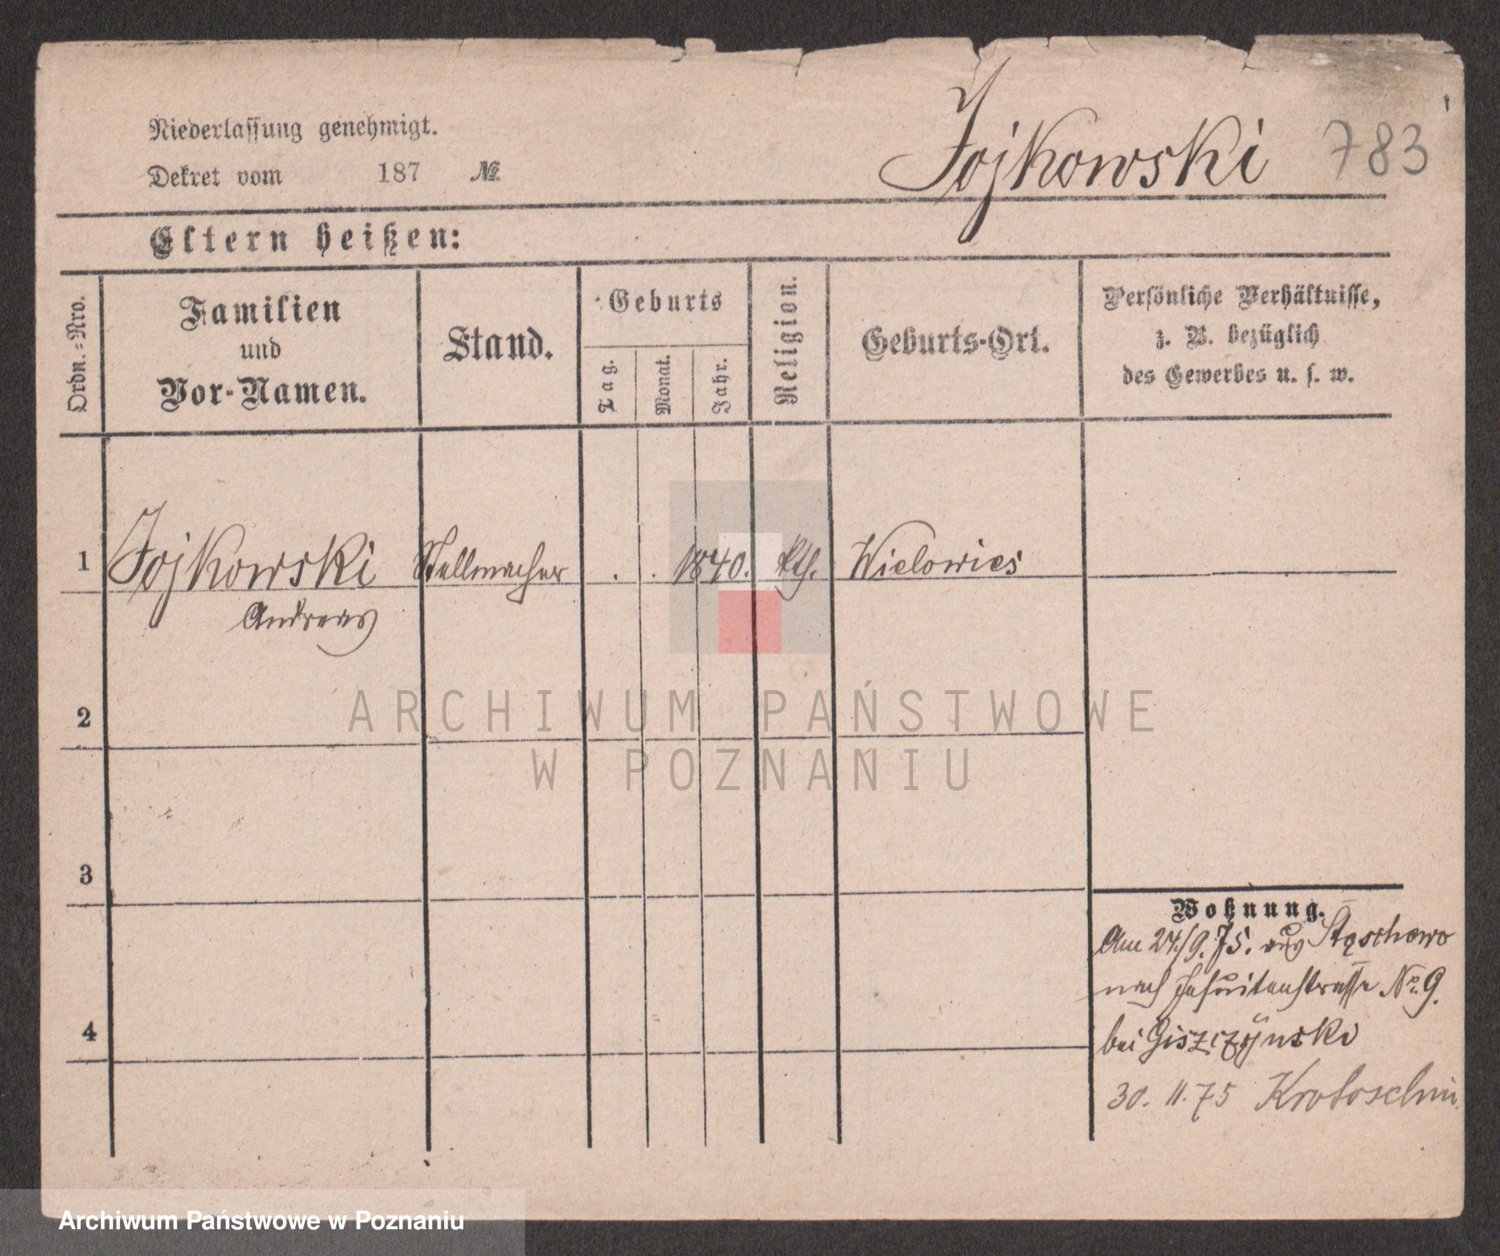 Niederlassung genehmigt.
Dekret vom 187 №
Jojkowski 783
Eltern heißen:
Ordn.-Nro.
Familien
und
Vor-Namen.
Stand.
Geburts
Tag.
Monat.
Jahr.
Religion.
Geburts-Ort.
Persönliche Verhältnisse,
z. B. bezüglich
des Gewerbes u. s. w.
1 Jojkowski Stellmacher . . 1840. kth. Wielowies
Andreas
2
3
4
Wohnung.
Am 24/9. 75. aus
nach Jesuitenstrasse No. 9.
bei Giszczÿnski
30. 11. 75 Krotoschin
ARCHIWUM PAŃSTWOWE
W POZNANIU
Archiwum Państwowe w Poznaniu